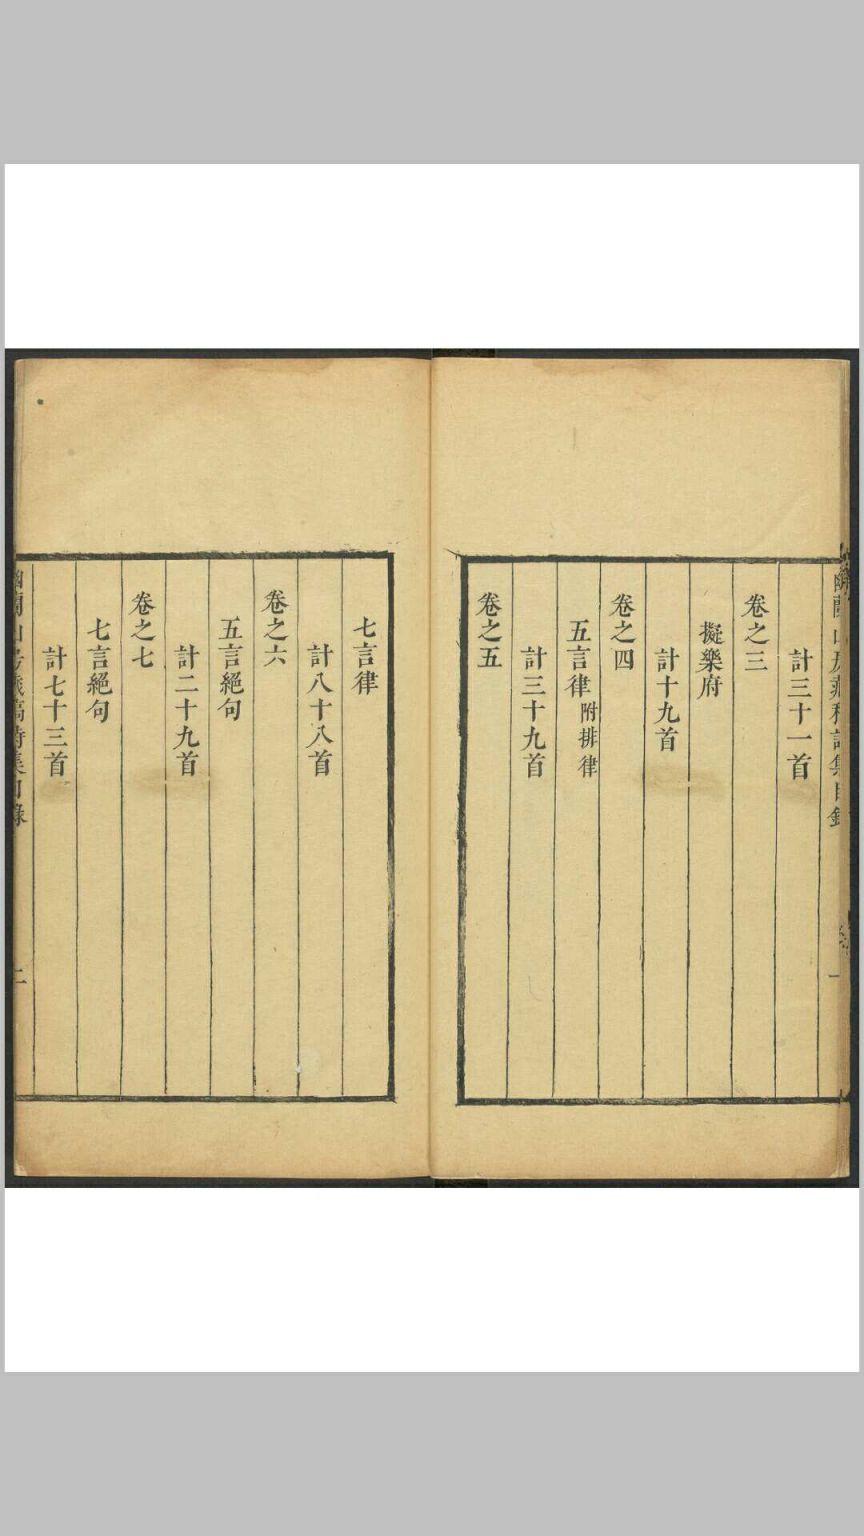 計三十一首
卷之三
擬樂府
計十九首
卷之四
五言律附排律
計三十九首
卷之五
七言律
計八十八首
卷之六
五言絕句
計二十九首
卷之七
七言絕句
計七十三首
二